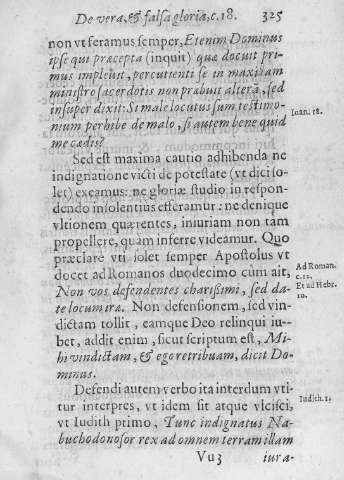 De vera, & falsa gloria, c. 18. 325
non vt feramus semper, Etenim Dominus
ipse qui præcepta (inquit) quæ docuit pri-
mus impleuit, percutienti se in maxillam
ministro sacerdotis non præbuit alterã, sed
insuper dixit: Si male locutus sum testimo-
nium perhibe de malo, si autem bene quid
me cædis?
Ioan. 18.
Sed est maxima cautio adhibenda ne
indignatione victi de potestate (vt dici so-
let) exeamus: ne gloriæ studio in respon-
dendo insolentius efferamur: ne denique
vltionem quærentes, iniuriam non tam
propellere, quam inferre videamur. Quo
præclare vti solet semper Apostolus vt
docet ad Romanos duodecimo cum ait,
Non vos defendentes charissimi, sed da-
te locum iræ. Non defensionem, sed vin-
dictam tollit, eamque Deo relinqui iu-
bet, addit enim, sicut scriptum est, Mi-
hi vindictam, & ego retribuam, dicit Do-
minus.
Ad Roman.
c. 12.
Et ad Hebr.
10.
Defendi autem verbo ita interdum vti-
tur interpres, vt idem sit atque vlcisci,
vt Iudith primo, Tunc indignatus Na-
buchodonosor rex ad omnem terram illam
Iudith. 1.
Vu3 iura-